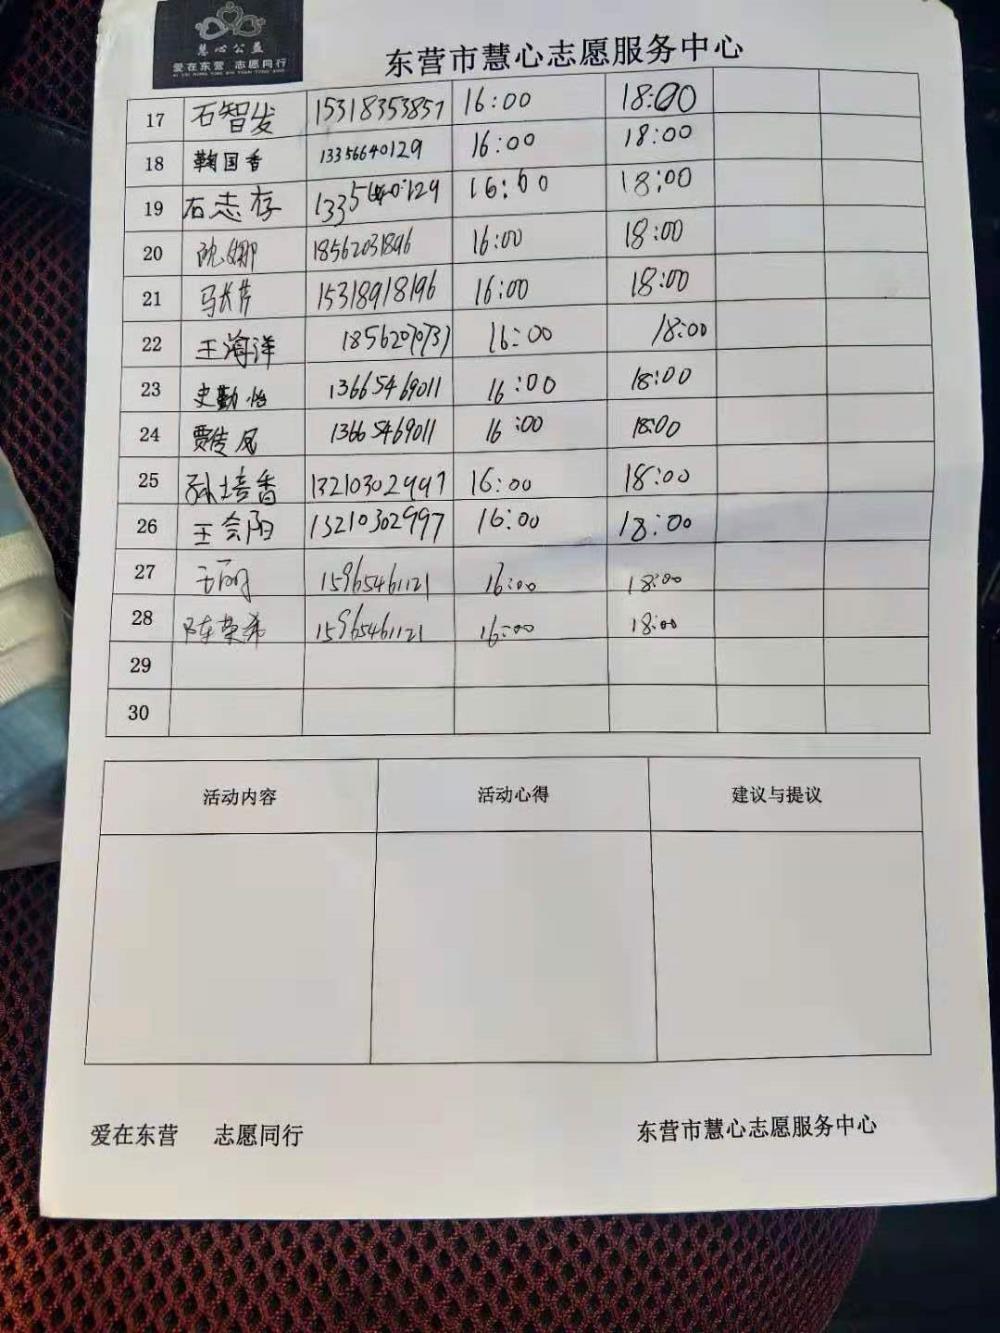 慧心公益
爱在东营 志愿同行
东营市慧心志愿服务中心
17 石智发 15318353857 16:00 18:00
18 鞠国香 13356640129 16:00 18:00
19 石志存 16:00 18:00
20 沈娜 18562031896 16:00 18:00
21 马长芹 15318918196 16:00 18:00
22 王海洋 16:00 18:00
23 史勤怡 13665469011 16:00 18:00
24 贾传凤 13665469011 16:00 18:00
25 孙培香 13210302997 16:00 18:00
26 王会阳 13210302997 16:00 18:00
27 王丽 15965461121 16:00 18:00
28 陈荣希 15965461121 16:00 18:00
29
30
活动内容 活动心得 建议与提议
爱在东营 志愿同行 东营市慧心志愿服务中心